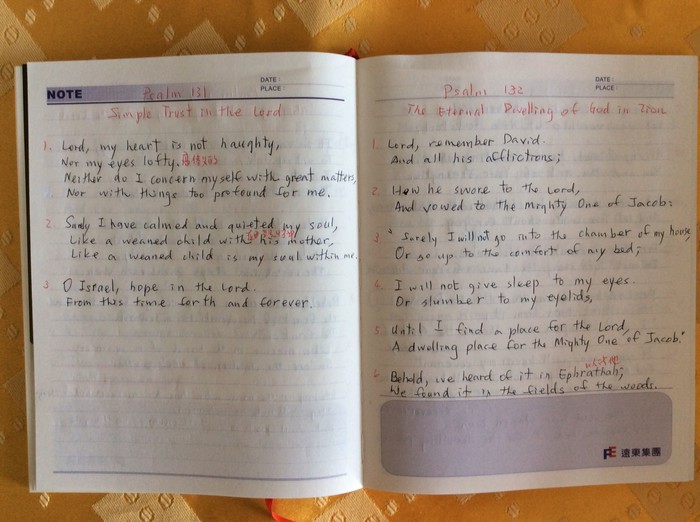 NOTE
Psalm 131
DATE :
PLACE :
Simple Trust in the Lord
1. Lord, my heart is not haughty,
Nor my eyes lofty.
Neither do I concern myself with great matters,
Nor with things too profound for me.
2. Surely I have calmed and quieted my soul,
Like a weaned child with his mother,
Like a weaned child is my soul within me.
3. O Israel, hope in the Lord.
From this time forth and forever.
Psalm 132
DATE :
PLACE :
The Eternal Dwelling of God in Zion
1. Lord, remember David.
And all his afflictions;
2. How he swore to the Lord,
And vowed to the mighty One of Jacob:
3. "Surely I will not go into the chamber of my house
Or go up to the comfort of my bed;
4. I will not give sleep to my eyes.
Or slumber to my eyelids,
5. Until I find a place for the Lord,
A dwelling place for the Mighty One of Jacob."
6. Behold, we heard of it in Ephrathah;
We found it in the fields of the woods.
FE 遠東集團